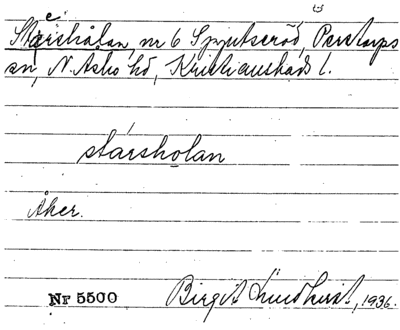 nr 6 Spjutseröd, Perstorps
sn, N. Åsbo hd, Kristianstads l.
stársholan
Åker.
Nr 5500 Birgit Lundkvist, 1936.